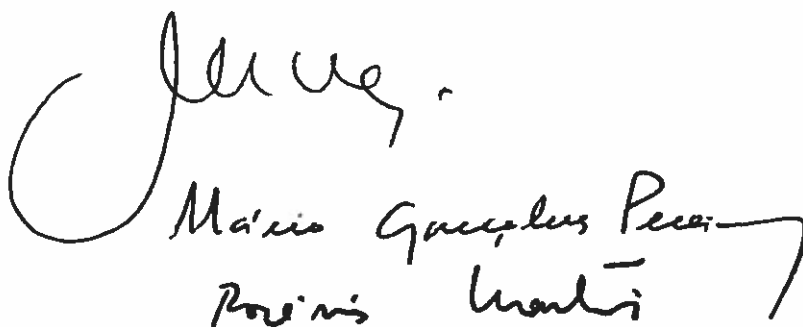 Mário Gonçalves Pereira
Rogério Martins